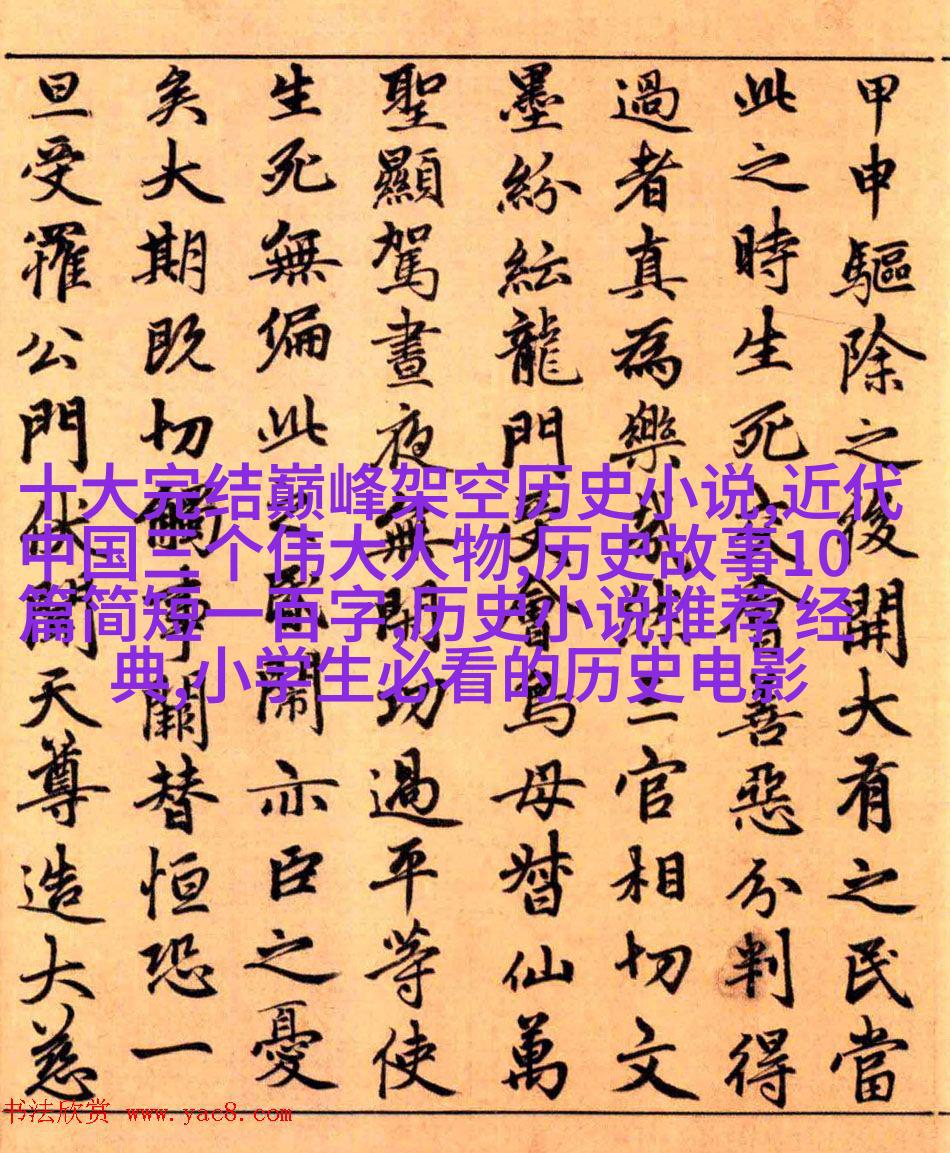 甲申驅除之後開大有之民當
此之時生死會善惡分判得
過者真為樂三官相切文
墨紛紜龍門會鳥母督仙萬
聖顯駕晝夜無閒功過平等使
生死無偏此鬧亦臣之憂
矣大期既切關替恒恐一
旦受罹公門伏聞天尊造大慈
十大完结巅峰架空历史小说,近代
中国三个伟大人物,历史故事10
篇简短一百字,历史小说推荐 经
典,小学生必看的历史电影
书法欣赏 www.yac8.com